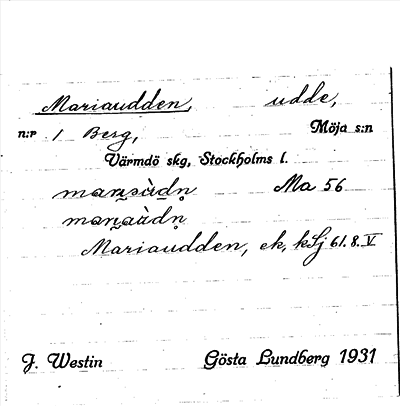 Mariaudden, udde,
n:r 1 Berg, Möja s:n
Värmdö skg, Stockholms l.
Ma 56
Mariaudden, ek, kSj 61.8.V.
J. Westin Gösta Lundberg 1931